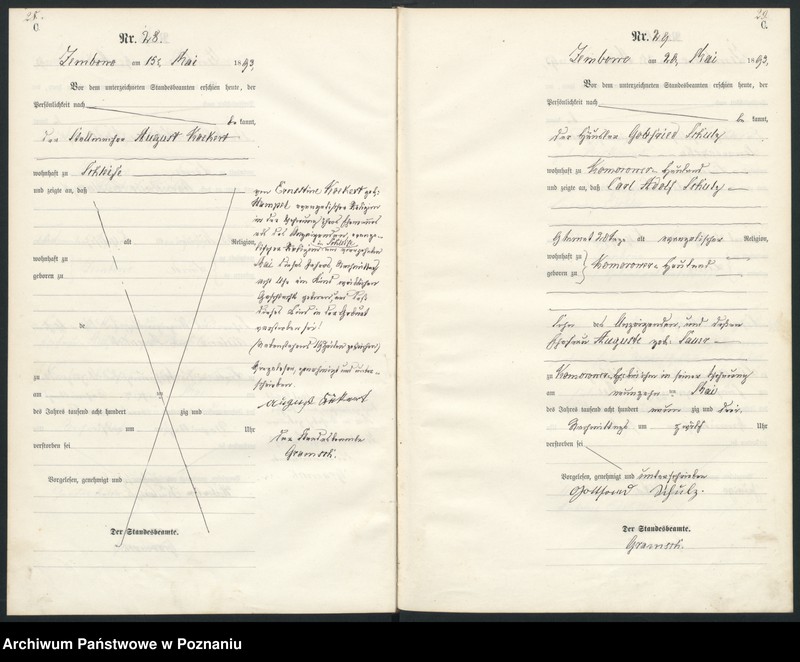 28.
C.
Nr. 28.
Zembowo am 15. Mai 1893.
Vor dem unterzeichneten Standesbeamten erschien heute, der
Persönlichkeit nach
be kannt,
der Stellmacher August
wohnhaft zu
und zeigte an, daß
von Ernestine geb.
evangelischer Religion
in der Wohnung ihres Ehemannes
als des Anzeigenden, evange-
lischer Religion, am
Mai dieses Jahres, Nachmittags
acht Uhr ein Kind weiblichen
Geschlechts geboren und daß
dieses Kind in der Geburt
verstorben sei.
Vorgelesen, genehmigt und unter-
schrieben.
August
Der Standesbeamte
Gramsch.
alt Religion,
wohnhaft zu
geboren zu
de
zu
am um
des Jahres tausend acht hundert zig und
um Uhr
verstorben sei
Vorgelesen, genehmigt und
Der Standesbeamte.
29.
C.
Nr. 29.
Zembowo am 20. Mai 1893.
Vor dem unterzeichneten Standesbeamten erschien heute, der
Persönlichkeit nach
be kannt,
der Häusler Gottfried Schulz
wohnhaft zu Komorowo-Hauland
und zeigte an, daß Carl Adolf Schulz
alt evangelischer Religion,
wohnhaft zu
geboren zu Komorowo-Hauland
Sohn des Anzeigenden, und dessen
Ehefrau Auguste geb.
zu Komorowo- in seiner Wohnung
am neunzehn ten Mai
des Jahres tausend acht hundert neun zig und drei
Nachmittags um zwölf Uhr
verstorben sei
Vorgelesen, genehmigt und unterschrieben
Gottfried Schulz.
Der Standesbeamte.
Gramsch.
Archiwum Państwowe w Poznaniu